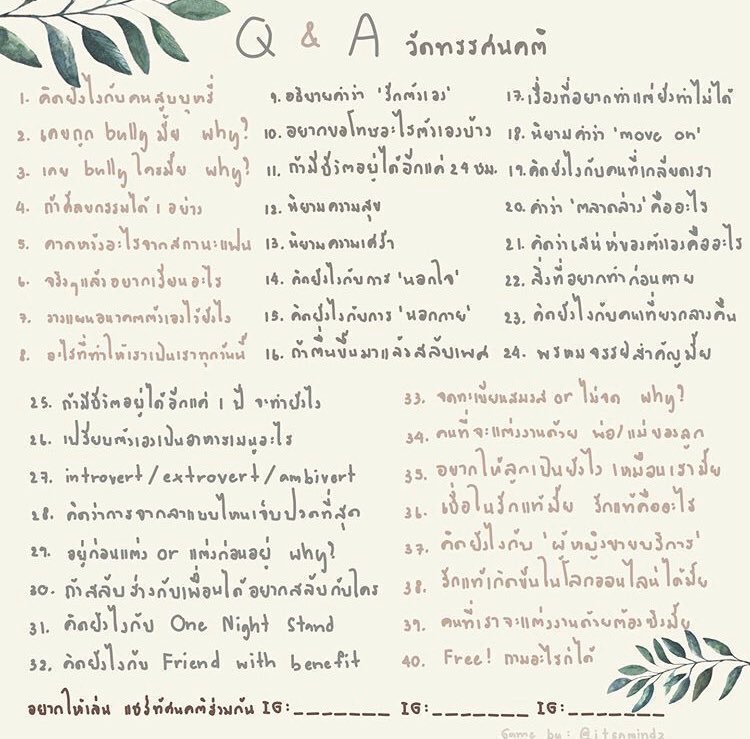 Q & A วัดทรรศนคติ
1. คิดยังไงกับคนสูบบุหรี่
2. เคยถูก bully มั้ย why?
3. เคย bully ใครมั้ย why?
4. ถ้าลบกรรมได้ 1 อย่าง
5. คาดหวังอะไรจากสถานะแฟน
6. จริงๆแล้วอยากเรียนอะไร
7. วางแผนอนาคตตัวเองไว้ยังไง
8. อะไรที่ทำให้เราเป็นเราทุกวันนี้
9. อธิบายคำว่า 'รักตัวเอง'
10. อยากขอโทษอะไรตัวเองบ้าง
11. ถ้ามีชีวิตอยู่ได้อีกแค่ 24 ชม.
12. นิยามความสุข
13. นิยามความเศร้า
14. คิดยังไงกับการ 'นอกใจ'
15. คิดยังไงกับการ 'นอกกาย'
16. ถ้าตื่นขึ้นมาแล้วสลับเพศ
17. เรื่องที่อยากทำแต่ยังทำไม่ได้
18. นิยามคำว่า 'move on'
19. คิดยังไงกับคนที่เกลียดเรา
20. คำว่า 'ตลาดล่าง' คืออะไร
21. คิดว่าเสน่ห์ของตัวเองคืออะไร
22. สิ่งที่อยากทำก่อนตาย
23. คิดยังไงกับคนเที่ยวกลางคืน
24. พรหมจรรย์สำคัญมั้ย
25. ถ้ามีชีวิตอยู่ได้อีกแค่ 1 ปี จะทำยังไง
26. เปรียบตัวเองเป็นอาหารเมนูอะไร
27. introvert / extrovert / ambivert
28. คิดว่าการจากลาแบบไหนเจ็บปวดที่สุด
29. อยู่ก่อนแต่ง or แต่งก่อนอยู่ why?
30. ถ้าสลับร่างกับเพื่อนได้อยากสลับกับใคร
31. คิดยังไงกับ One Night Stand
32. คิดยังไงกับ Friend with benefit
33. จดทะเบียนสมรส or ไม่จด why?
34. คนที่จะแต่งงานด้วย พ่อ/แม่ของลูก
35. อยากให้ลูกเป็นยังไง เหมือนเรามั้ย
36. เชื่อในรักแท้มั้ย รักแท้คืออะไร
37. คิดยังไงกับ 'ผู้หญิงขายบริการ'
38. รักแท้เกิดขึ้นในโลกออนไลน์ได้มั้ย
39. คนที่เราจะแต่งงานด้วยต้องซิงมั้ย
40. Free! ถามอะไรก็ได้
อยากให้เล่น แชร์ทัศนคติร่วมกัน IG:_______ IG:_______ IG:_______
Game by: @itsnmindz